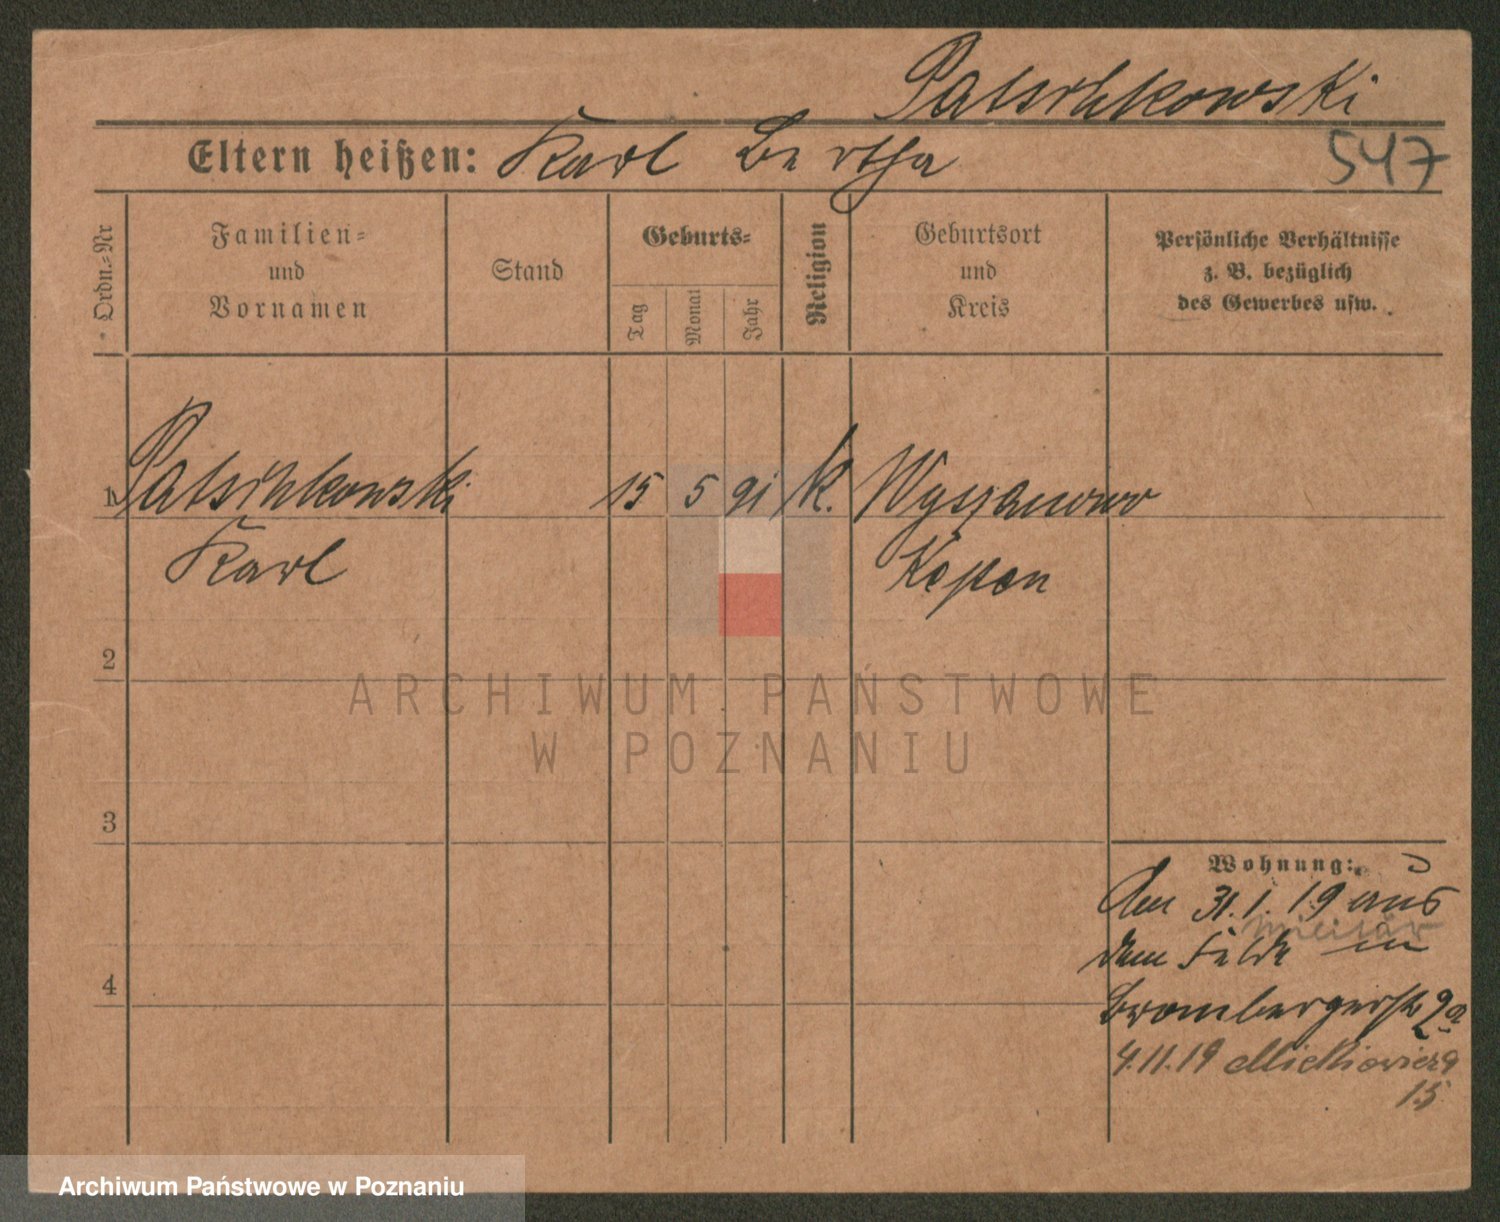 Patschkowski
Eltern heißen: Karl Bertha
547
Ordn.=Nr
Familien=
und
Vornamen
Stand
Geburts=
Tag
Monat
Jahr
Religion
Geburtsort
und
Kreis
Persönliche Verhältnisse
z. B. bezüglich
des Gewerbes usw.
1 Patschkowski 15 5 91 k. Wyszanowo
Karl Kepen
2
3
4
Wohnung:
Am 31.1.19 aus
Militär
dem Felde in
Brombergerstr 2a
4.11.19 Mickiewicza
15
ARCHIWUM PAŃSTWOWE
W POZNANIU
Archiwum Państwowe w Poznaniu